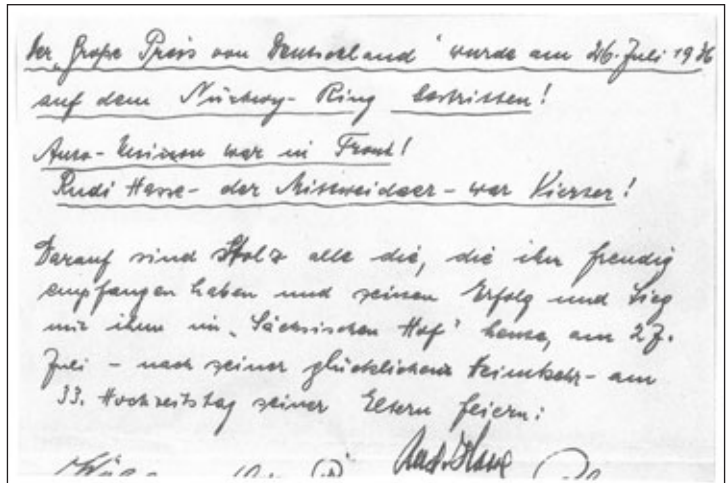 Der „Große Preis von Deutschland" wurde am 26. Juli 1936
auf dem Nürburg-Ring bestritten!
Auto-Union war in Front!
Rudi Hasse - der Mittweidaer - war Vierter!
Darauf sind Stolz alle die, die ihn freudig
empfangen haben und seinen Erfolg und Sieg
mit ihm im „Sächsischen Hof" heute, am 27.
Juli - nach seiner glücklichen Heimkehr - am
33. Hochzeitstag seiner Eltern feiern:
Rud. Hasse